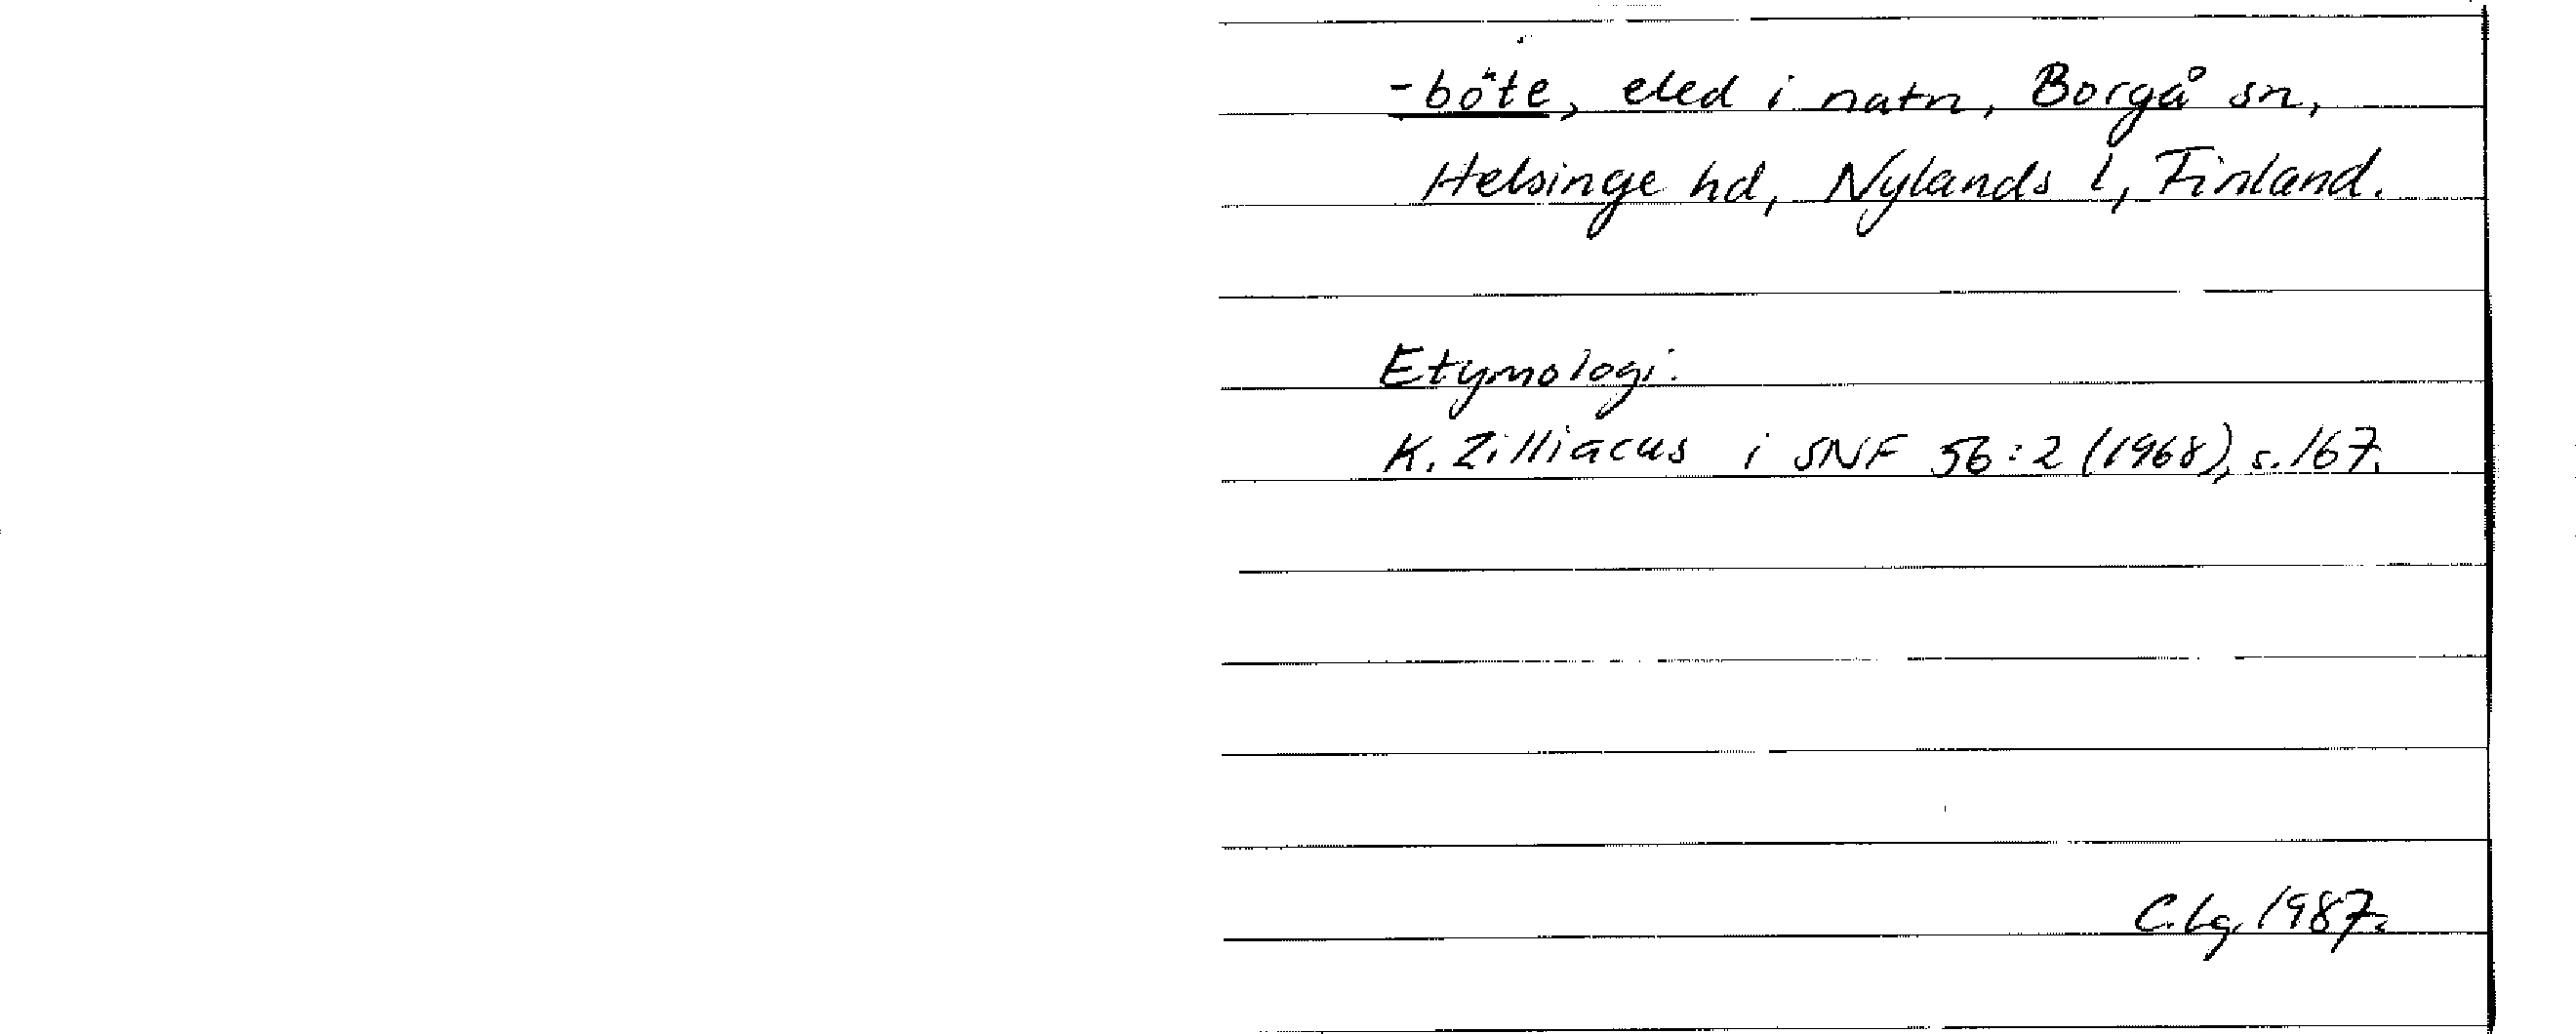 -böte, eled i natn, Borgå sn,
Helsinge hd, Nylands l, Finland.
Etymologi.
K. Zilliacus i SNF 56:2 (1968), s. 167.
C. Lg. 1987.